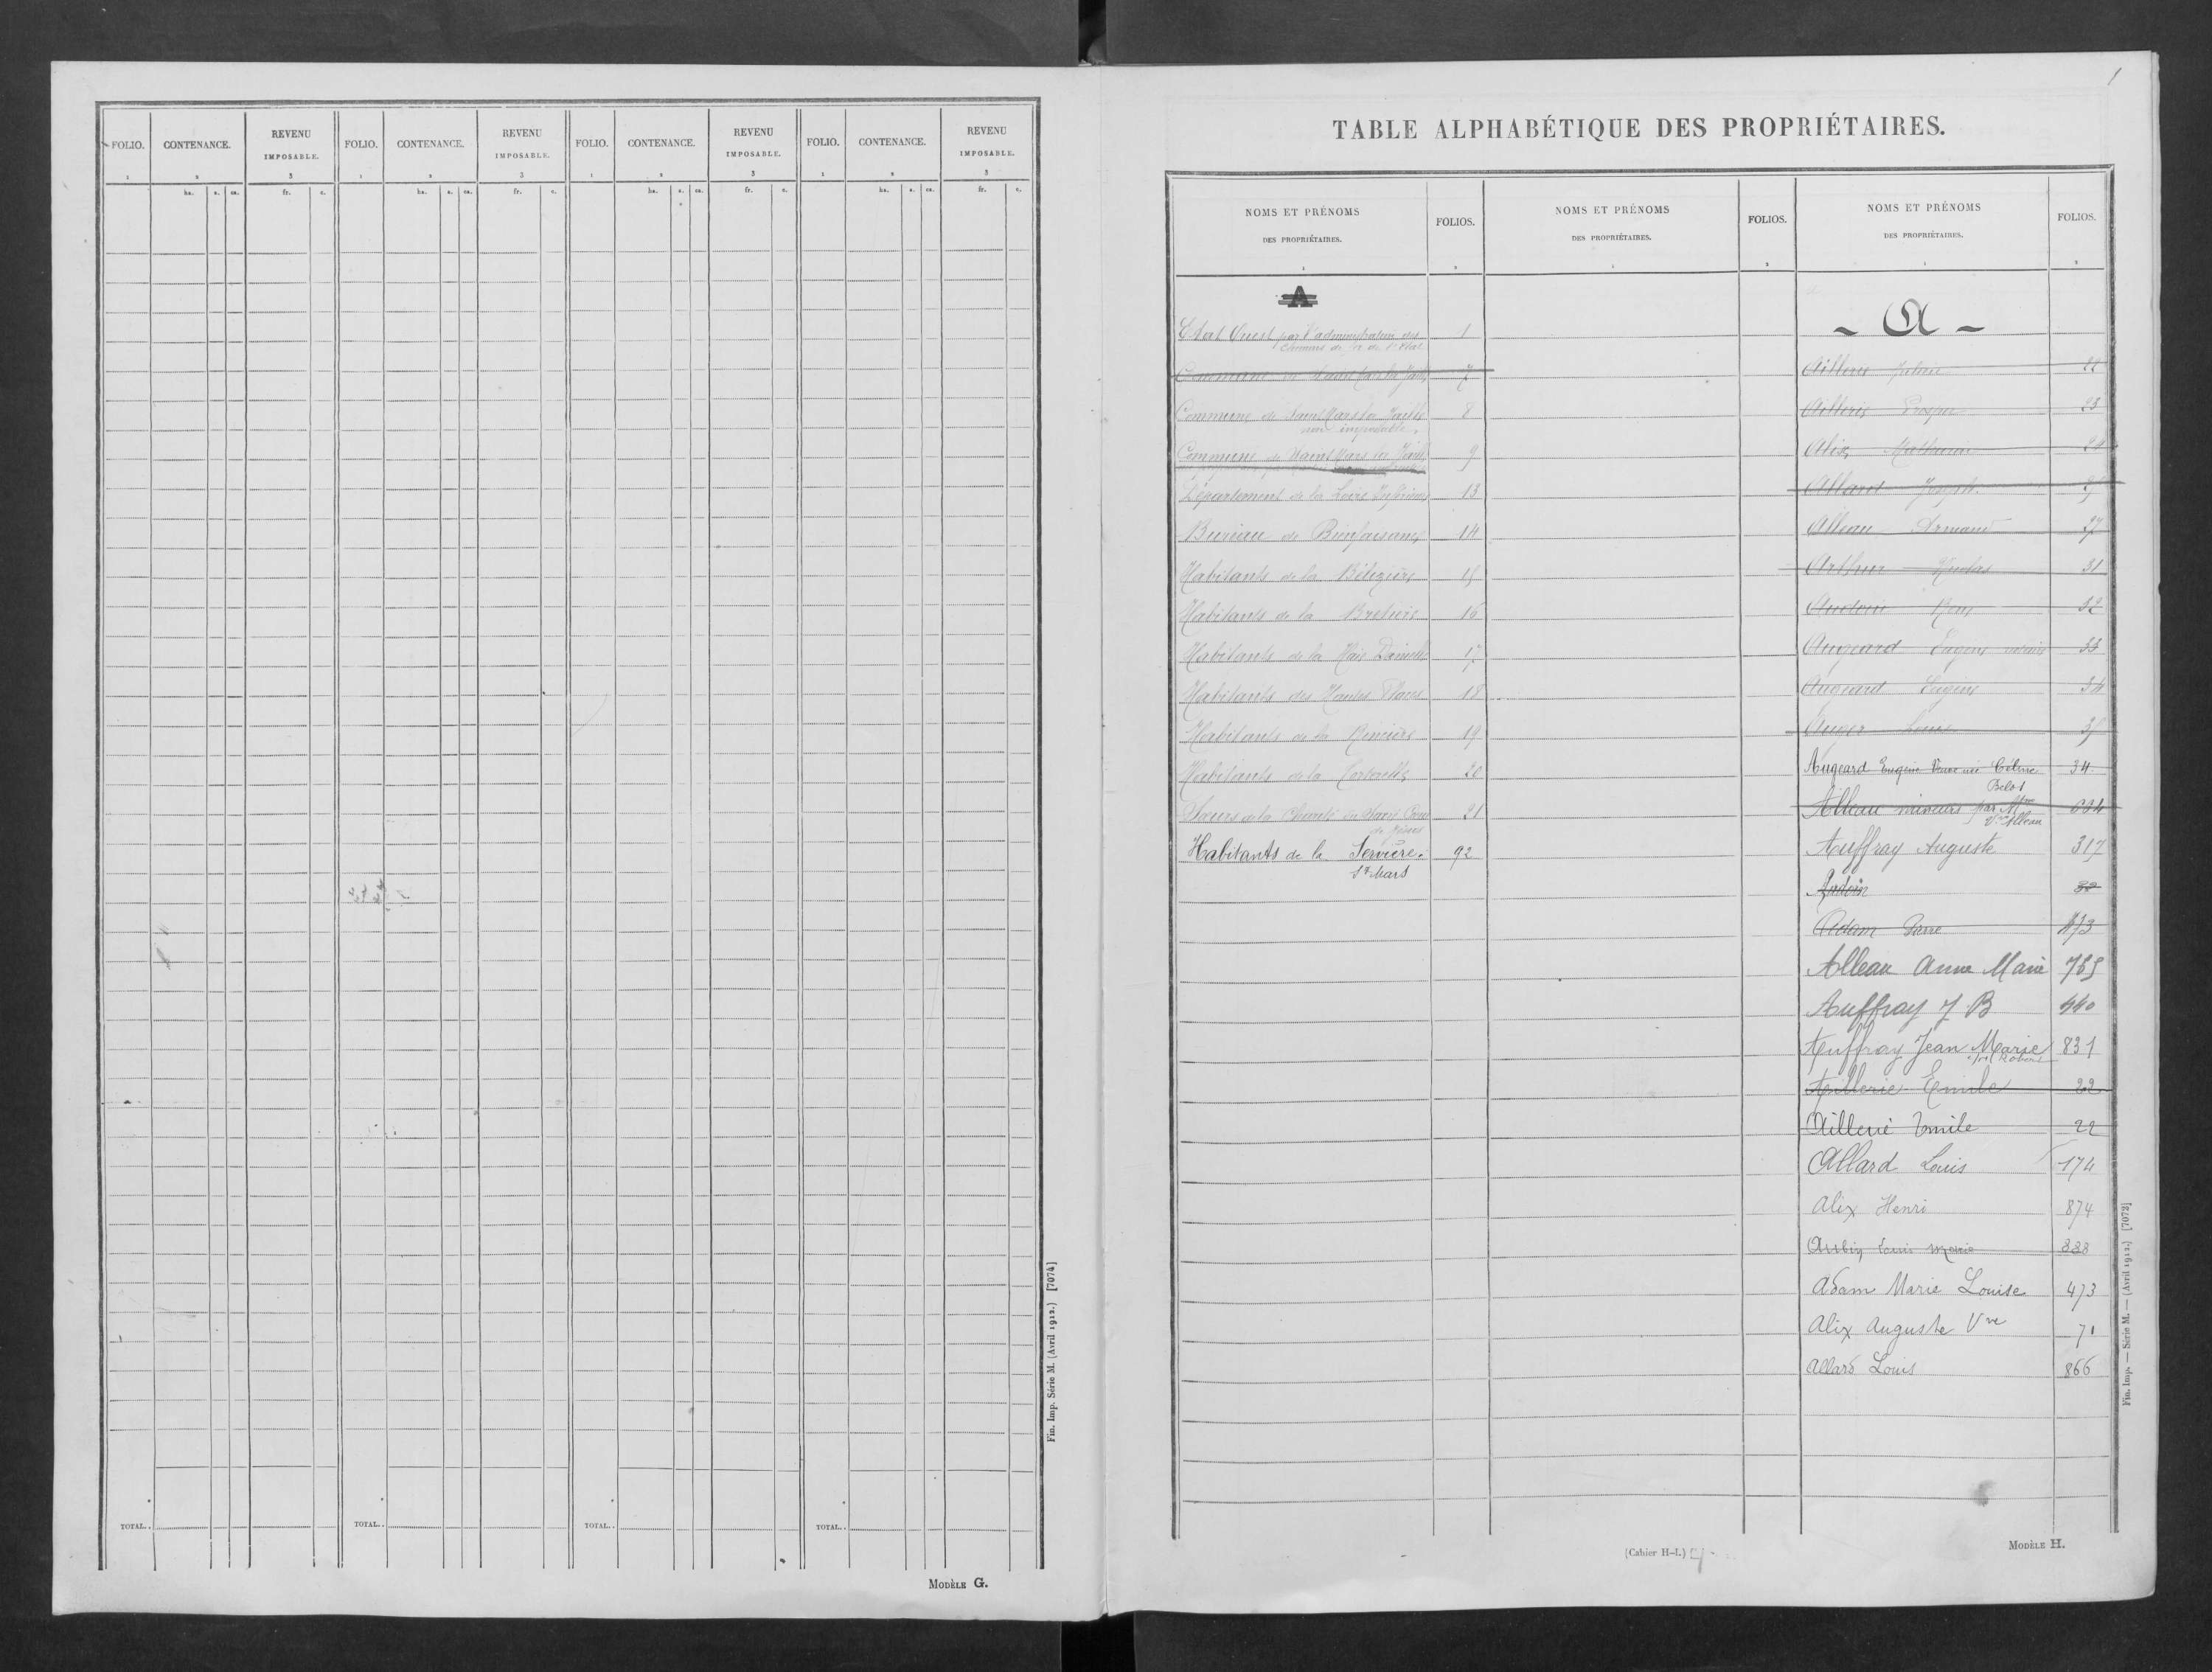 FOLIO. CONTENANCE. REVENU IMPOSABLE. FOLIO. CONTENANCE. REVENU IMPOSABLE. FOLIO. CONTENANCE. REVENU IMPOSABLE. FOLIO. CONTENANCE. REVENU IMPOSABLE.
1 2 3 1 2 3 1 2 3 1 2 3
ha. a. ca. fr. c. ha. a. ca. fr. c. ha. a. ca. fr. c. ha. a. ca. fr. c.
TOTAL.. TOTAL.. TOTAL.. TOTAL..
Fin. Imp. Série M. (Avril 1912.) [7074]
MODÈLE G.
1
TABLE ALPHABÉTIQUE DES PROPRIÉTAIRES.
NOMS ET PRÉNOMS DES PROPRIÉTAIRES. FOLIOS. NOMS ET PRÉNOMS DES PROPRIÉTAIRES. FOLIOS. NOMS ET PRÉNOMS DES PROPRIÉTAIRES. FOLIOS.
1 2 1 2 1 2
A
Etat Ouest par l'administration des 1
chemins de fer de l'Etat
Commune de Saint Mars la Jaille 7
Commune de Saint Mars la Jaille 8
non imposable
Commune de Saint Mars la Jaille 9
Département de la Loire Inférieure 13
Bureau de Bienfaisance 14
Habitants de la 15
Habitants de la 16
Habitants de la 17
Habitants des Hautes 18
Habitants de la 19
Habitants de la 20
Sœurs de la Charité du Sacré Cœur 21
Habitants de la Serviere. 92
St Mars
- A -
Aillerie Julien 22
Aillerie Prosper 23
Alix Mathurin 24
Allard Joseph 25
Alleau Armand 27
Arthur Nicolas 31
Audoin 32
Augeard Eugène notaire 33
Augeard Eugène 34
Auger Louis 35
Augeard Eugène Veuve née Céline 34
Belot
Alleau mineurs par Mme 694
Vve Alleau
Auffray Auguste 317
Audoin 32
Adam 473
Alleau Anne Marie 765
Auffray J B 440
Auffray Jean Marie 831
Aillerie Emile 22
Aillerie Emile 22
Allard Louis 174
Alix Henri 874
Aubin Louis Marie 338
Adam Marie Louise 473
Alix Auguste Vve 71
Allard Louis 866
Fin. Imp. — Série M. — (Avril 1912.) [7072]
(Cahier H-L.)
MODÈLE H.